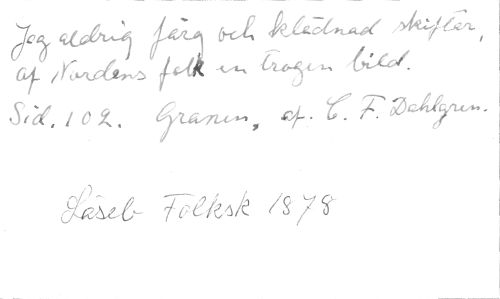 Jag aldrig färg och klädnad skiftar,
af Nordens folk en trogen bild.
Sid. 102. Granen, af. C. F. Dahlgren.
Läseb Folksk 1878